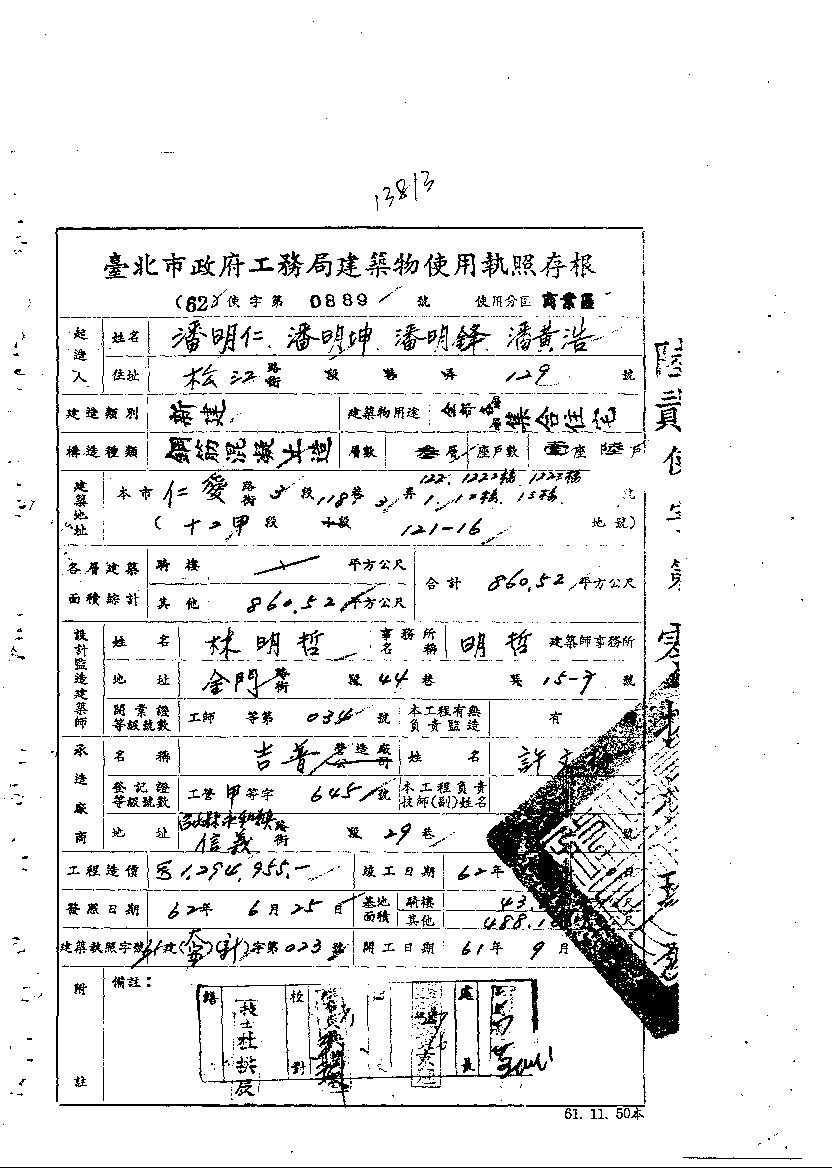 13813
臺北市政府工務局建築物使用執照存根
(62)使字第 0889 號 使用分區 商業區
起造人 姓名 潘明仁、潘明坤、潘明鋒、潘黃浩
住址 松江 路街 段 巷 弄 129 號
建造類別 新建 建築物用途 集合住宅
構造種類 鋼筋混凝土造 層數 叁層 座戶數 壹座 陸戶
建築地址 本市 仁愛 路街 3 段 118巷 弄 號
(十二甲 段 段 121-16 地號)
各層建築面積綜計 騎樓 平方公尺 合計 860.52 平方公尺
其他 860.52 平方公尺
設計監造建築師 姓名 林明哲 事務所名稱 明哲 建築師事務所
地址 金門 路街 段 44 巷 弄 15-3 號
開業證等級號數 工師 等第 034 號 本工程有無負責監造 有
承造廠商 名稱 吉普 營造廠公司 姓名 許文
登記證等級號數 工營 甲 等字 645 號 本工程負責技師(副)姓名
地址 信義 路街 段 29 巷 號
工程造價 1,294,955.- 竣工日期 62年
發照日期 62年 6月 25日 基地面積 騎樓 43.
其他 488.1
建築執照字號 61建 字第 023 號 開工日期 61年 9月
附註 備註：
校對
處長
61. 11. 50本
陸貳使字第零